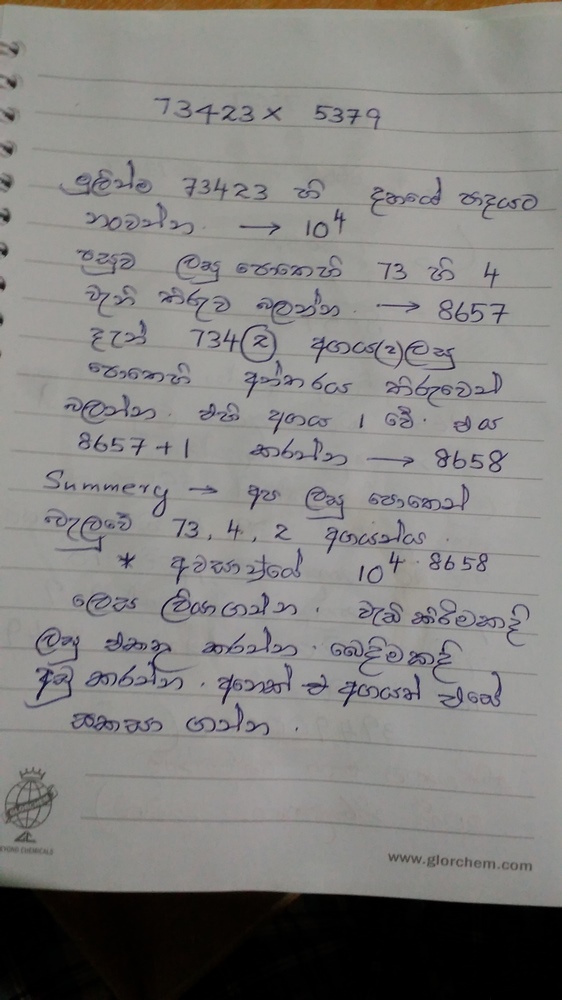 73423 × 5379
මුලින්ම 73423 හි දහයේ පාදයට
නංවන්න. → 10⁴
පසුව ලඝු පොතෙහි 73 හි 4
වැනි තිරුව බලන්න. → 8657
දැන් 734② අගය(2)ලඝු
පොතෙහි අන්තරය තිරුවෙන්
බලන්න. එහි අගය 1 වේ. එය
8657+1 කරන්න → 8658
Summery → අප ලඝු පොතෙන්
බැලුවේ 73, 4, 2 අගයන්ය.
* අවසානයේ 10⁴·⁸⁶⁵⁸
ලෙස ලියාගන්න. වැඩි කිරීමකදී
ලඝු එකතු කරන්න. බෙදීමකදී
අඩු කරන්න. අනෙක් අගයත් එසේ
සකසා ගන්න.
www.glorchem.com